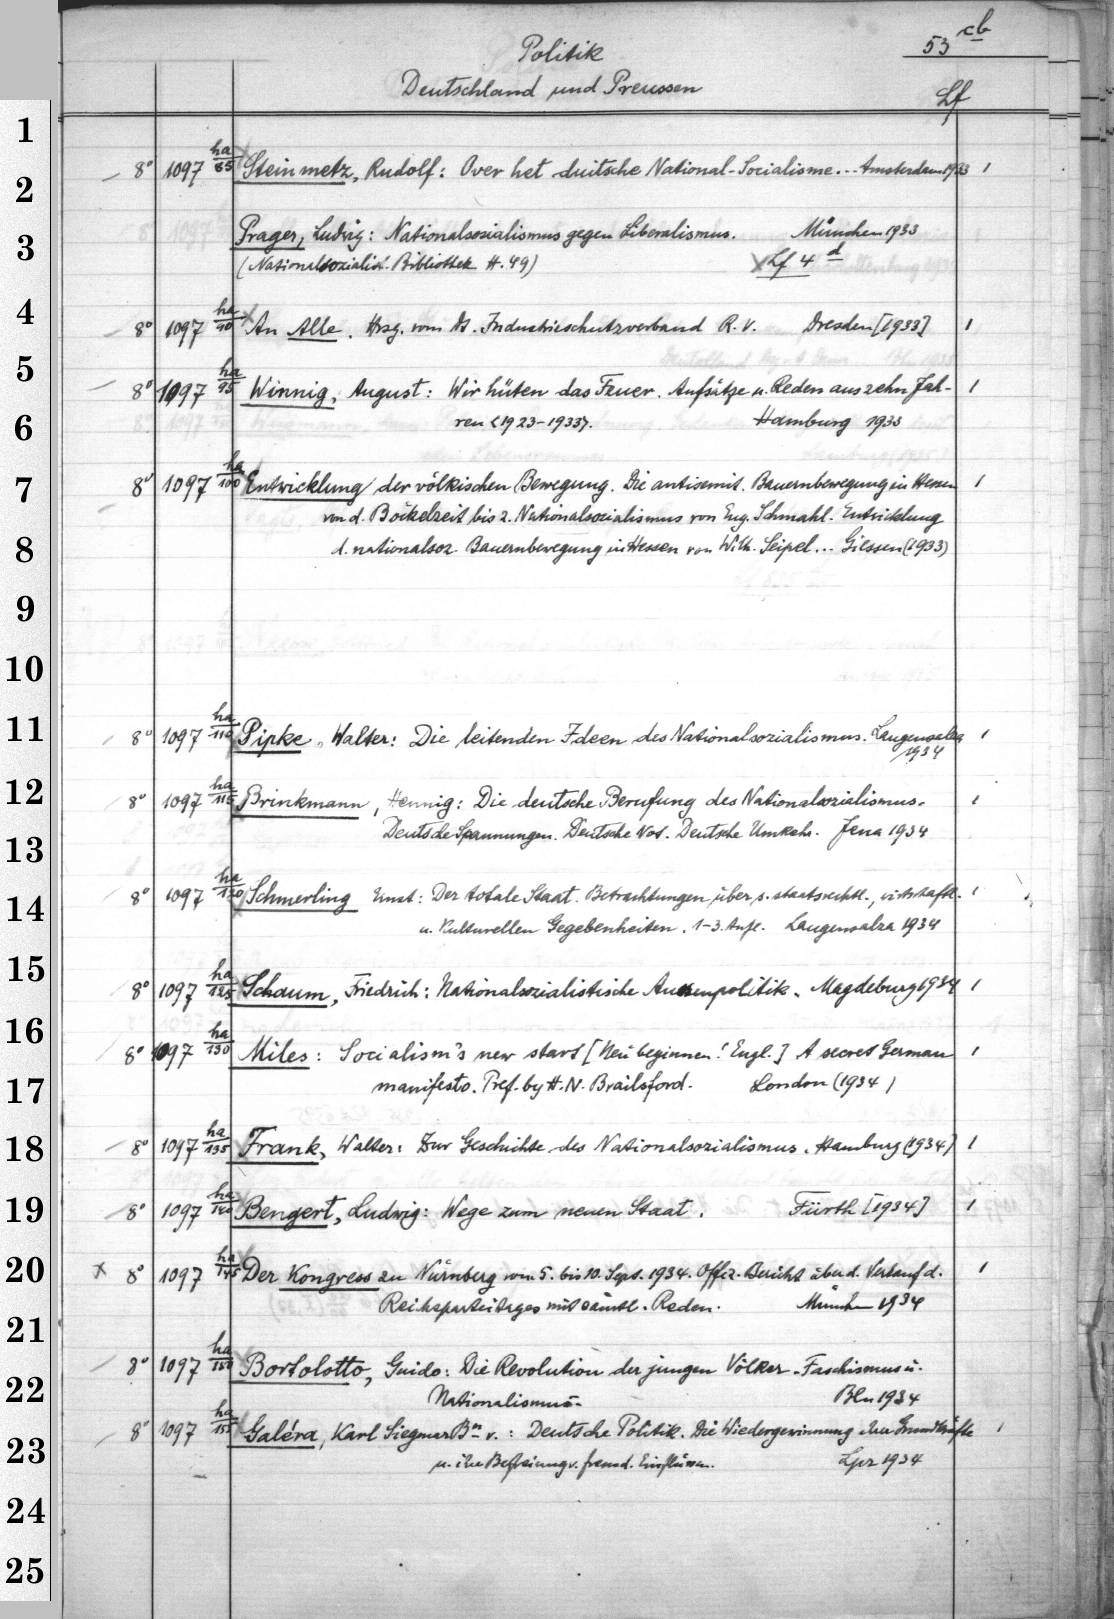 53 cb
Politik
Deutschland und Preussen
Lf
1
8° 1097 ha/85 Steinmetz, Rudolf: Over het duitsche National-Socialisme... Amsterdam 1933 1
2
Prager, Ludwig: Nationalsozialismus gegen Liberalismus. München 1933
3
(Nationalsozialist. Bibliothek H. 49) Lf 4 d
4
8° 1097 ha/90 An Alle. Hrsg. vom Dt. Industrieschutzverband R. V. Dresden [1933] 1
5
8° 1097 ha/95 Winnig, August: Wir hüten das Feuer. Aufsätze u. Reden aus zehn Jah-
6
ren <1923-1933>. Hamburg 1933 1
7
8° 1097 ha/100 Entwicklung der völkischen Bewegung. Die antisemit. Bauernbewegung in Hessen 1
von d. Böckelzeit bis z. Nationalsozialismus von Eug. Schmahl. Entwicklung
8
d. nationalsoz. Bauernbewegung in Hessen von Wilh. Seipel... Giessen (1933)
9
10
11
8° 1097 ha/110 Pipke, Walter: Die leitenden Ideen des Nationalsozialismus. Langensalza 1
1934
12
8° 1097 ha/115 Brinkmann, Hennig: Die deutsche Berufung des Nationalsozialismus. 1
Deutsche Spannungen. Deutsche Not. Deutsche Umkehr. Jena 1934
13
8° 1097 ha/120 Schmerling Ernst: Der totale Staat. Betrachtungen über s. staatsrechtl., wirtschaftl. 1
14
u. kulturellen Gegebenheiten. 1-3. Aufl. Langensalza 1934
15
8° 1097 ha/125 Schaum, Friedrich: Nationalsozialistische Aussenpolitik. Magdeburg 1934 1
16
8° 1097 ha/130 Miles: Socialism's new start [Neu beginnen! Engl.] A secret German 1
17
manifesto. Pref. by H. N. Brailsford. London (1934)
18
8° 1097 ha/135 Frank, Walter: Zur Geschichte des Nationalsozialismus. Hamburg (1934) 1
19
8° 1097 ha/140 Bengert, Ludwig: Wege zum neuen Staat. Fürth [1934] 1
20
x 8° 1097 ha/145 Der Kongress zu Nürnberg vom 5. bis 10. Sept. 1934. Offiz. Bericht über d. Verlauf d. 1
Reichsparteitages mit sämtl. Reden. München 1934
21
8° 1097 ha/150 Bortolotto, Guido: Die Revolution der jungen Völker. Faschismus u.
22
Nationalismus. Bln 1934
8° 1097 ha/155 Galéra, Karl Siegmar Bn v.: Deutsche Politik. Die Wiedergewinnung ihrer Grundkräfte 1
23
u. ihre Befreiung v. fremd. Einflüssen. Lpz 1934
24
25